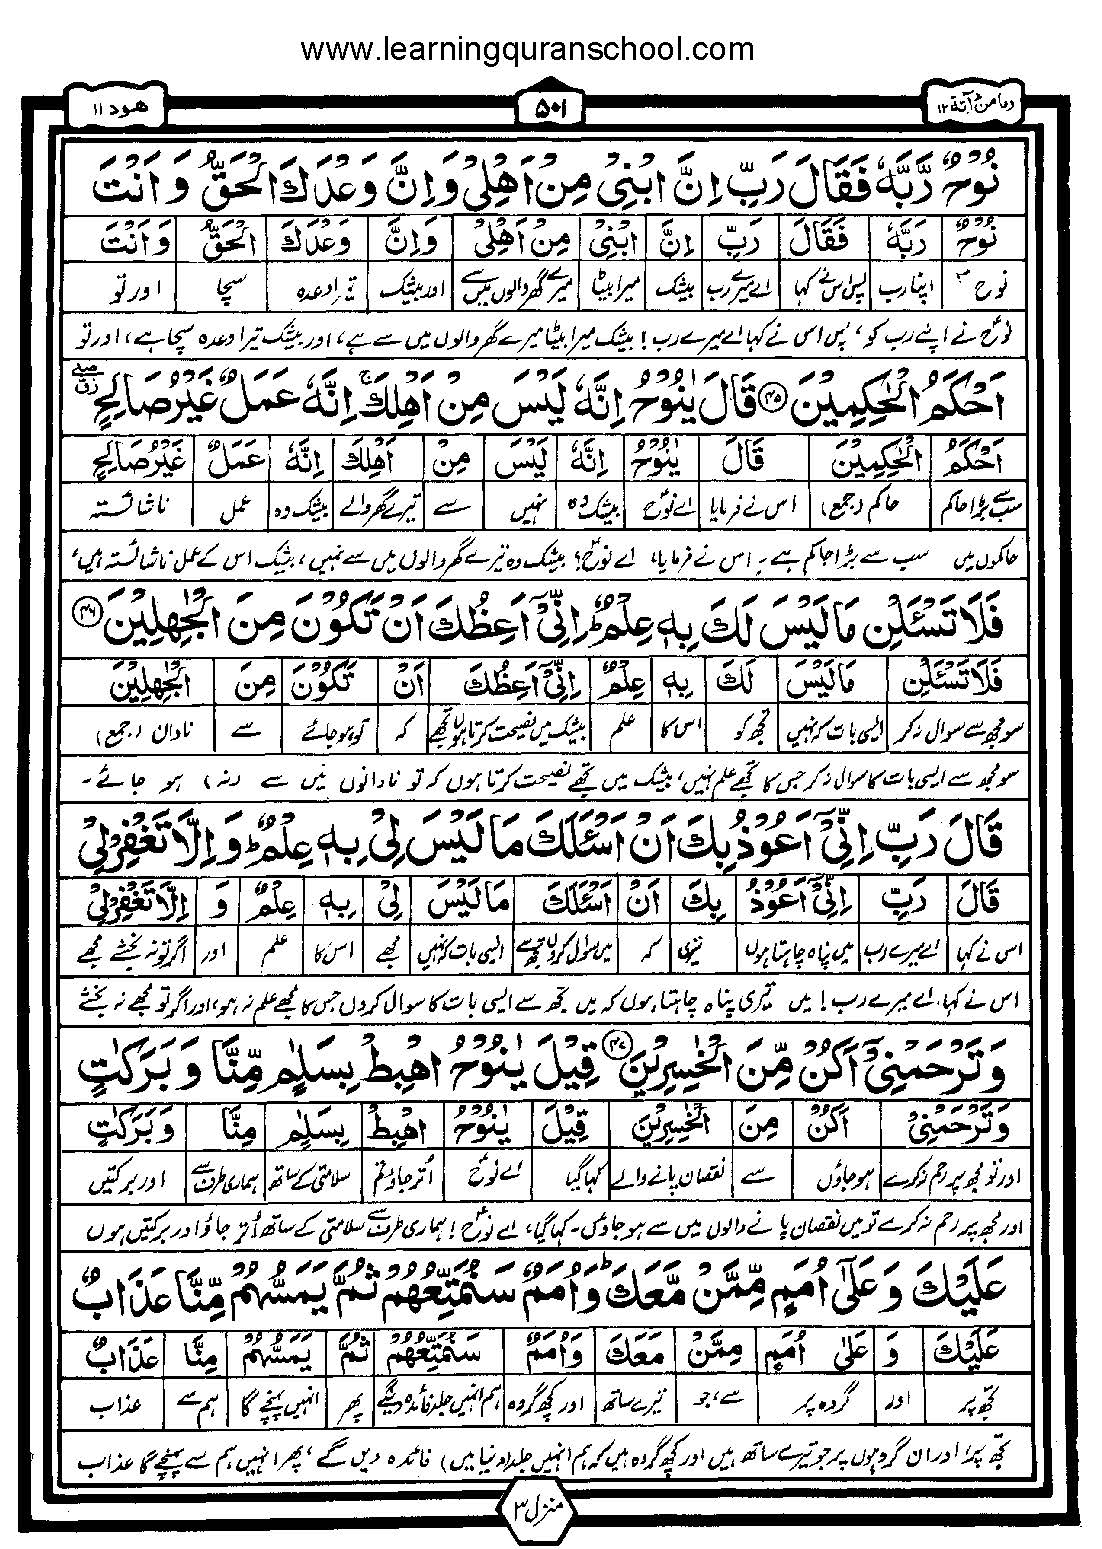 www.learningquranschool.com
ومامن دآبة ١٢
٥٠١
هود ١١
نُوْحٌ رَّبَّهٗ فَقَالَ رَبِّ اِنَّ ابْنِىْ مِنْ اَهْلِىْ وَاِنَّ وَعْدَكَ الْحَقُّ وَ اَنْتَ
نُوْحٌ رَبَّهٗ فَقَالَ رَبِّ اِنَّ ابْنِىْ مِنْ اَهْلِىْ وَاِنَّ وَعْدَكَ الْحَقُّ وَ اَنْتَ
نوح اپنا رب پس اس نے کہا اے میرے رب بیشک میرا بیٹا میرے گھر والوں میں سے اور بیشک تیرا وعدہ سچا اور تو
نوح نے اپنے رب کو، پس اس نے کہا اے میرے رب! بیشک میرا بیٹا میرے گھر والوں میں سے ہے، اور بیشک تیرا وعدہ سچا ہے، اور تو
اَحْكَمُ الْحٰكِمِيْنَ ﴿٤٥﴾ قَالَ يٰنُوْحُ اِنَّهٗ لَيْسَ مِنْ اَهْلِكَ ۚ اِنَّهٗ عَمَلٌ غَيْرُ صَالِحٍ
اَحْكَمُ الْحٰكِمِيْنَ قَالَ يٰنُوْحُ اِنَّهٗ لَيْسَ مِنْ اَهْلِكَ اِنَّهٗ عَمَلٌ غَيْرُ صَالِحٍ
سب سے بڑا حاکم حاکم (جمع) اس نے فرمایا اے نوح بیشک وہ نہیں سے تیرے گھر والے بیشک وہ عمل ناشائستہ
حاکموں میں سب سے بڑا حاکم ہے۔ اس نے فرمایا، اے نوح! بیشک وہ تیرے گھر والوں میں سے نہیں، بیشک اس کے عمل ناشائستہ ہیں،
فَلَا تَسْئَلْنِ مَا لَيْسَ لَكَ بِهٖ عِلْمٌ ؕ اِنِّىْۤ اَعِظُكَ اَنْ تَكُوْنَ مِنَ الْجٰهِلِيْنَ ﴿٤٦﴾
فَلَا تَسْئَلْنِ مَا لَيْسَ لَكَ بِهٖ عِلْمٌ اِنِّىْۤ اَعِظُكَ اَنْ تَكُوْنَ مِنَ الْجٰهِلِيْنَ
سو مجھ سے سوال نہ کر ایسی بات کہ نہیں تجھ کو اس کا علم بیشک میں نصیحت کرتا ہوں تجھے کہ تو ہو جائے سے نادان (جمع)
سو مجھ سے ایسی بات کا سوال نہ کر جس کا تجھے علم نہیں، بیشک میں تجھے نصیحت کرتا ہوں کہ تو نادانوں میں سے (نہ) ہو جائے۔
قَالَ رَبِّ اِنِّىْۤ اَعُوْذُ بِكَ اَنْ اَسْئَلَكَ مَا لَيْسَ لِىْ بِهٖ عِلْمٌ ؕ وَ اِلَّا تَغْفِرْ لِىْ
قَالَ رَبِّ اِنِّىْۤ اَعُوْذُ بِكَ اَنْ اَسْئَلَكَ مَا لَيْسَ لِىْ بِهٖ عِلْمٌ وَ اِلَّا تَغْفِرْ لِىْ
اس نے کہا اے میرے رب میں پناہ چاہتا ہوں تیری کہ میں سوال کروں تجھ سے ایسی بات کہ نہیں مجھے اس کا علم اور اگر تو نہ بخشے مجھے
اس نے کہا، اے میرے رب! میں تیری پناہ چاہتا ہوں کہ میں تجھ سے ایسی بات کا سوال کروں جس کا مجھے علم نہ ہو، اور اگر تو مجھے نہ بخشے
وَ تَرْحَمْنِىْۤ اَكُنْ مِّنَ الْخٰسِرِيْنَ ﴿٤٧﴾ قِيْلَ يٰنُوْحُ اهْبِطْ بِسَلٰمٍ مِّنَّا وَ بَرَكٰتٍ
وَ تَرْحَمْنِىْۤ اَكُنْ مِنَ الْخٰسِرِيْنَ قِيْلَ يٰنُوْحُ اهْبِطْ بِسَلٰمٍ مِنَّا وَ بَرَكٰتٍ
اور تو مجھ پر رحم نہ کرے ہو جاؤں سے نقصان پانے والے کہا گیا اے نوح اتر جاؤ تم سلامتی کے ساتھ ہماری طرف سے اور برکتیں
اور مجھ پر رحم نہ کرے تو میں نقصان پانے والوں میں سے ہو جاؤں۔ کہا گیا، اے نوح! ہماری طرف سے سلامتی کے ساتھ اُتر جاؤ اور برکتیں ہوں
عَلَيْكَ وَ عَلٰۤى اُمَمٍ مِّمَّنْ مَّعَكَ ؕ وَ اُمَمٌ سَنُمَتِّعُهُمْ ثُمَّ يَمَسُّهُمْ مِّنَّا عَذَابٌ
عَلَيْكَ وَ عَلٰى اُمَمٍ مِمَّنْ مَعَكَ وَ اُمَمٌ سَنُمَتِّعُهُمْ ثُمَّ يَمَسُّهُمْ مِنَّا عَذَابٌ
تجھ پر اور گروہ پر سے، جو تیرے ساتھ اور کچھ گروہ ہم انہیں جلد فائدہ دینگے پھر انہیں پہنچے گا ہم سے عذاب
تجھ پر، اور ان گروہوں پر جو تیرے ساتھ ہیں اور کچھ گروہ ہیں کہ ہم انہیں جلد (دنیا میں) فائدہ دیں گے، پھر انہیں ہم سے پہنچے گا عذاب
منزل ٣